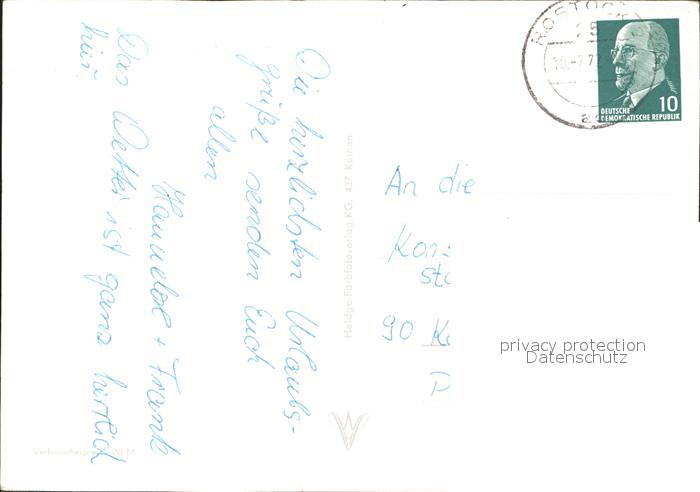 Die herzlichsten Urlaubs-
grüße senden Euch
allen
Hannelore + Frank
Das Wetter ist ganz herrlich
hier.
Heldge-Farbfotoverlag KG, 437 Köthen
Verbraucherpreis 20 M
An die
Kon
sto
90 K
ROSTOCK
25
10
DEUTSCHE
DEMOKRATISCHE REPUBLIK
privacy protection
Datenschutz